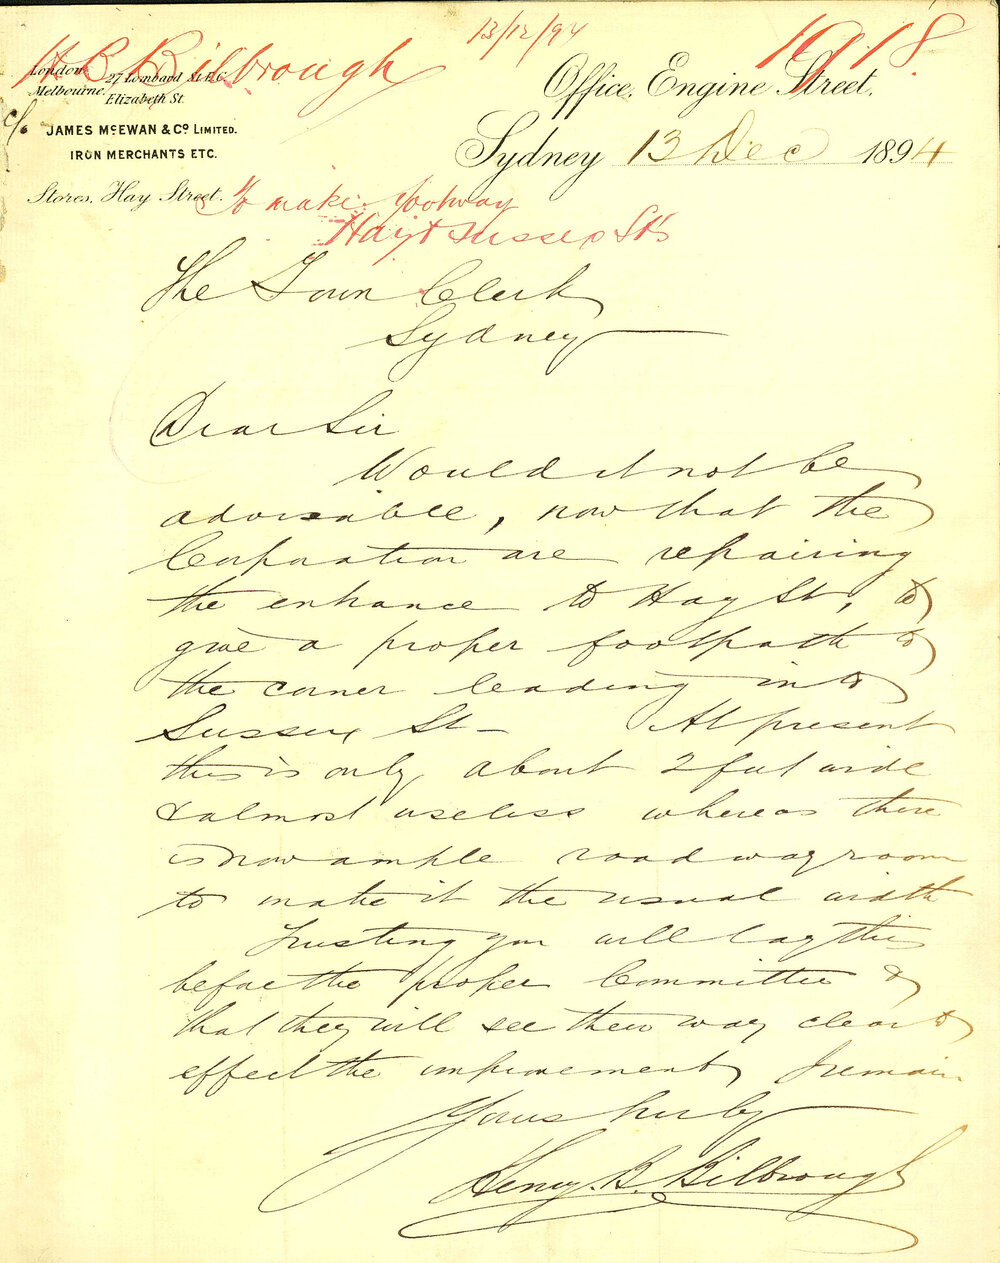 13/12/94
H B Bilbrough
London. 27 Lombard St E.C.
Melbourne. Elizabeth St.
c/o JAMES McEWAN & Co LIMITED.
IRON MERCHANTS ETC.
Stores, Hay Street.
Office, Engine Street.
Sydney 13 Dec 1894
To make footway
Hay & Sussex Sts
The Town Clerk
Sydney
Dear Sir
Would it not be
advisable, now that the
Corporation are repairing
the entrance to Hay St, to
give a proper footpath to
the corner leading into
Sussex St — At present
this is only about 2 feet wide
& almost useless whereas there
is now ample roadway room
to make it the usual width
Trusting you will lay this
before the proper Committee &
that they will see their way clear to
effect the improvement, I remain
Yours truly
Henry. B. Bilbrough